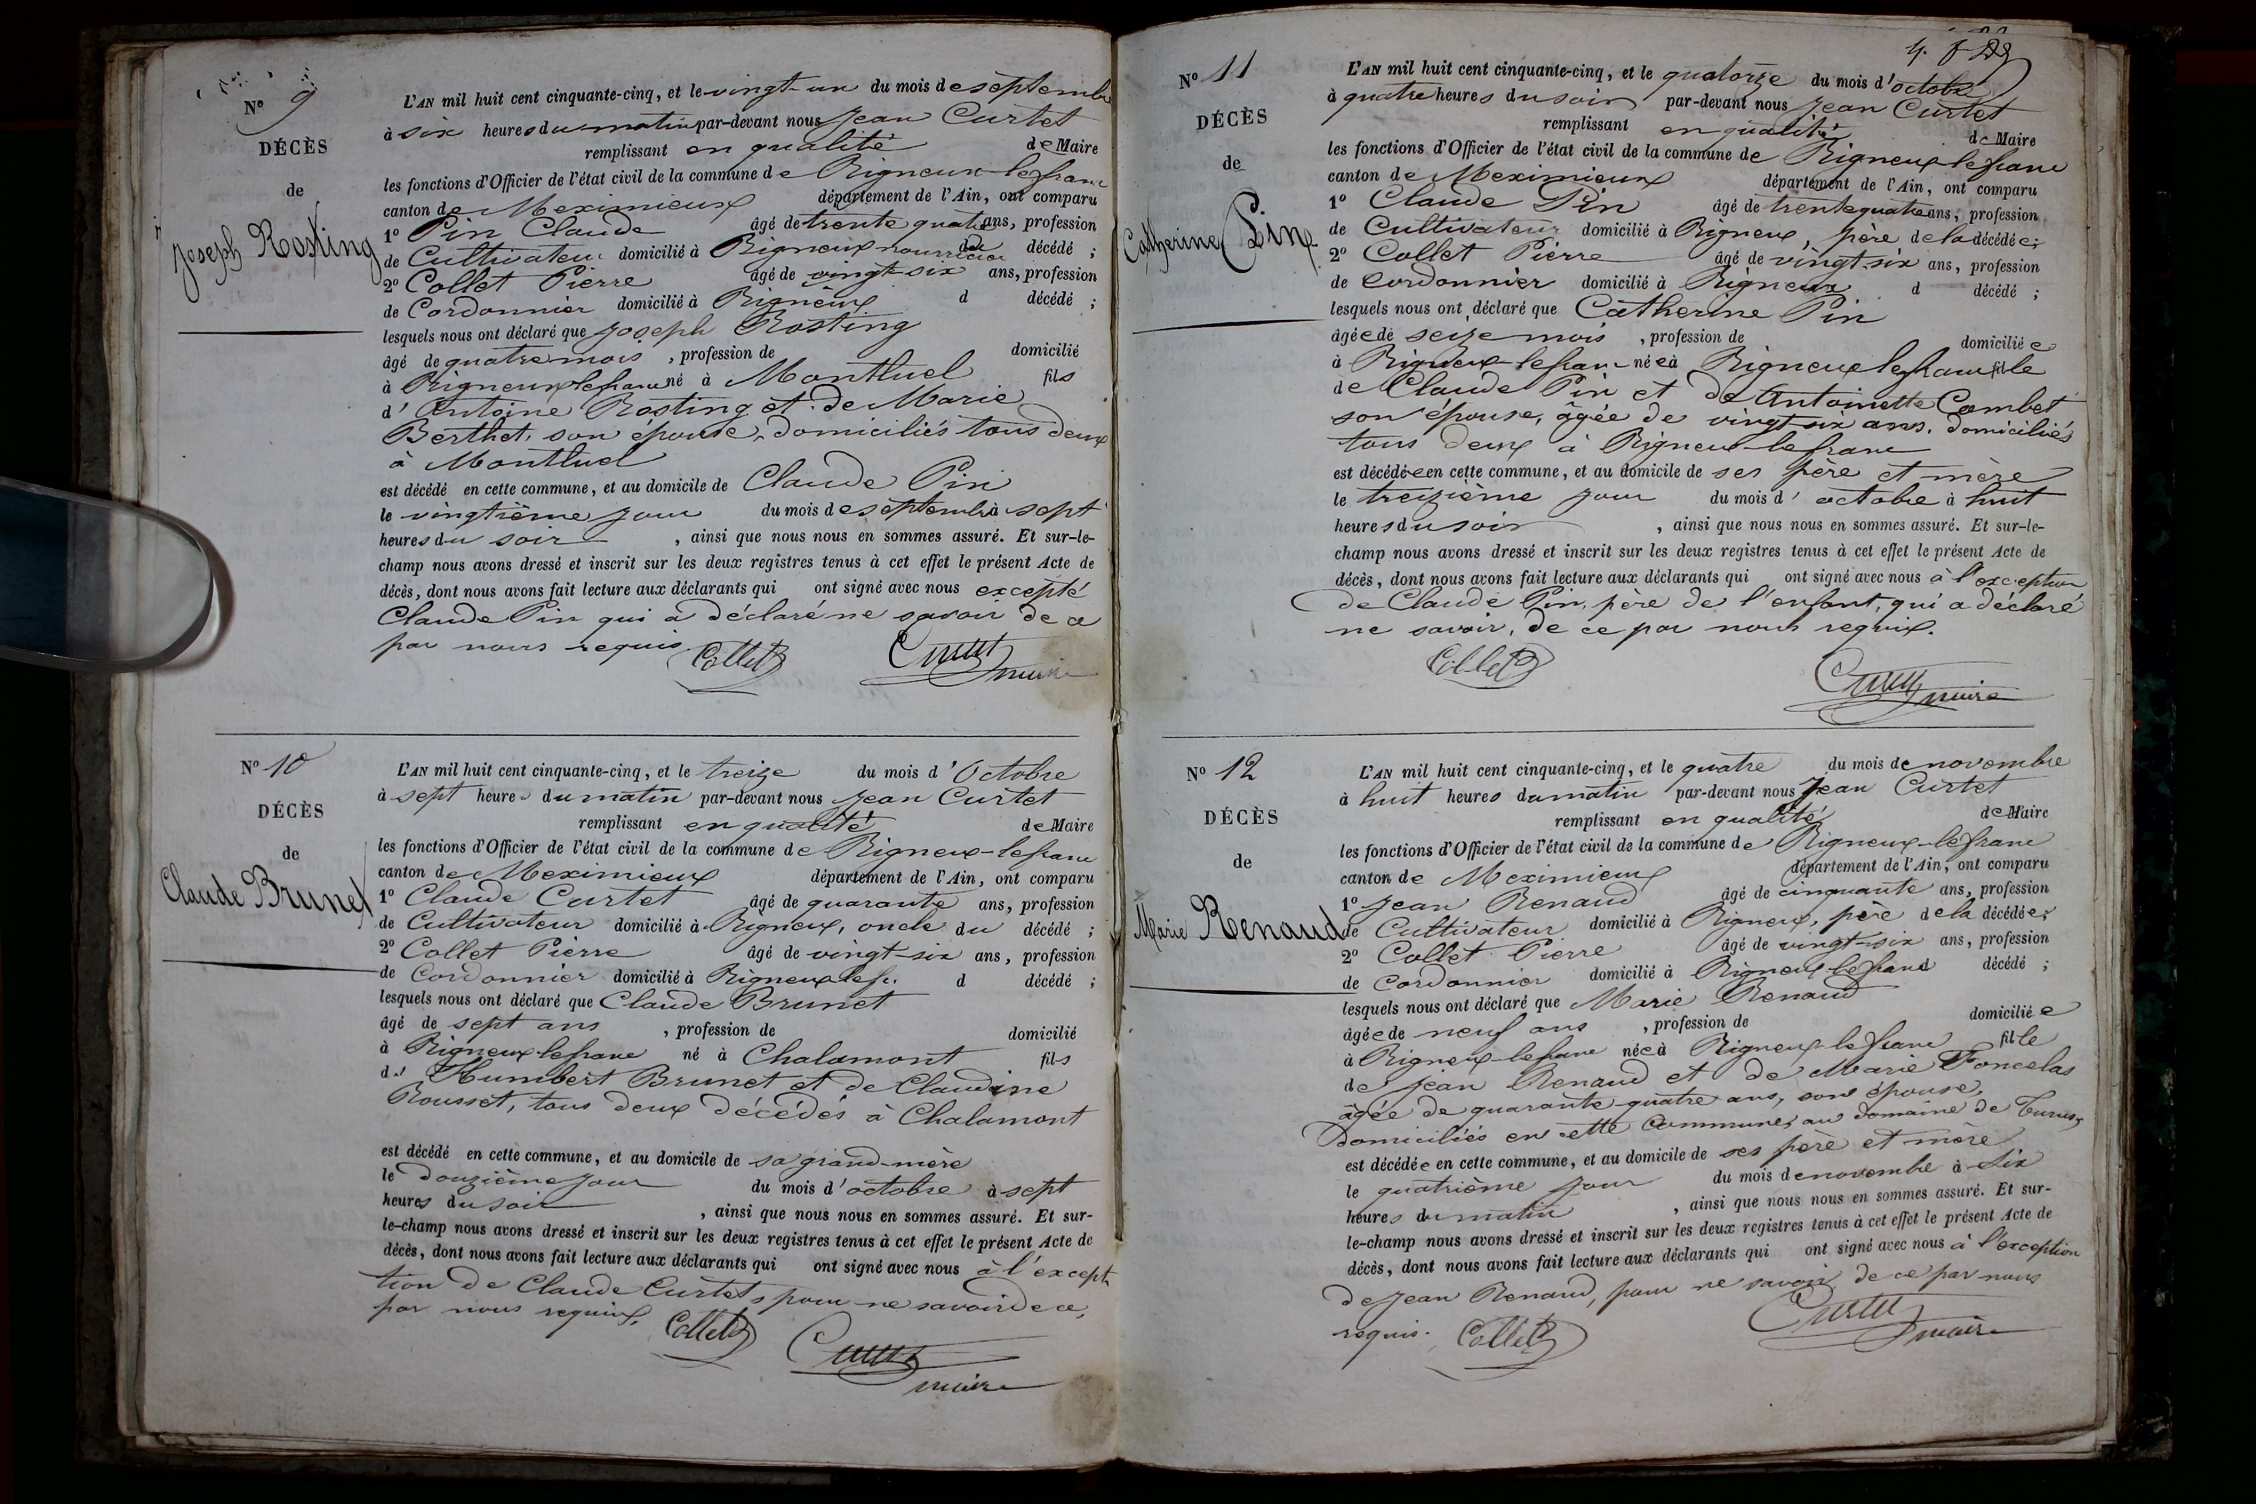 Nº 9
DÉCÈS
de
Joseph Rosting
L'AN mil huit cent cinquante-cinq, et le vingt-un du mois de septembre
à six heures du matin par-devant nous Jean Curtet
remplissant en qualité de Maire
les fonctions d'Officier de l'état civil de la commune de Rigneux-lefranc
canton de Meximieux département de l'Ain, ont comparu
1º Pin Claude âgé de trente quatre ans, profession
de Cultivateur domicilié à Rigneux nourricier du décédé ;
2º Collet Pierre âgé de vingt-six ans, profession
de Cordonnier domicilié à Rigneux d décédé ;
lesquels nous ont déclaré que Joseph Rosting
âgé de quatre mois , profession de domicilié
à Rigneux lefranc né à Montluel fils
d' Antoine Rosting et de Marie
Berthet, son épouse, domiciliés tous deux
à Montluel
est décédé en cette commune, et au domicile de Claude Pin
le vingtième jour du mois de septembre à sept
heures du soir , ainsi que nous nous en sommes assuré. Et sur-le-
champ nous avons dressé et inscrit sur les deux registres tenus à cet effet le présent Acte de
décès, dont nous avons fait lecture aux déclarants qui ont signé avec nous excepté
Claude Pin qui a déclaré ne savoir de ce
par nous requis
Collet Curtet
maire
Nº 10
DÉCÈS
de
Claude Brunet
L'AN mil huit cent cinquante-cinq, et le treize du mois d'Octobre
à sept heures du matin par-devant nous Jean Curtet
remplissant en qualité de Maire
les fonctions d'Officier de l'état civil de la commune de Rigneux-lefranc
canton de Meximieux département de l'Ain, ont comparu
1º Claude Curtet âgé de quarante ans, profession
de Cultivateur domicilié à Rigneux, oncle du décédé ;
2º Collet Pierre âgé de vingt-six ans, profession
de Cordonnier domicilié à Rigneux lefr. d décédé ;
lesquels nous ont déclaré que Claude Brunet
âgé de sept ans , profession de domicilié
à Rigneux lefranc né à Chalamont fils
d' Humbert Brunet et de Claudine
Rousset, tous deux décédés à Chalamont
est décédé en cette commune, et au domicile de sa grand-mère
le douzième jour du mois d'octobre à sept
heures du soir , ainsi que nous nous en sommes assuré. Et sur-
le-champ nous avons dressé et inscrit sur les deux registres tenus à cet effet le présent Acte de
décès, dont nous avons fait lecture aux déclarants qui ont signé avec nous à l'excep
tion de Claude Curtet, pour ne savoir de ce,
par nous requis.
Collet Curtet
maire
Nº 11
DÉCÈS
de
Catherine Pin
L'AN mil huit cent cinquante-cinq, et le quatorze du mois d'octobre
à quatre heures du soir par-devant nous Jean Curtet
remplissant en qualité de Maire
les fonctions d'Officier de l'état civil de la commune de Rigneux lefranc
canton de Meximieux département de l'Ain, ont comparu
1º Claude Pin âgé de trente quatre ans, profession
de Cultivateur domicilié à Rigneux, père de la décédée ;
2º Collet Pierre âgé de vingt-six ans, profession
de Cordonnier domicilié à Rigneux d décédé ;
lesquels nous ont déclaré que Catherine Pin
âgée de seize mois , profession de domiciliée
à Rigneux-lefranc née à Rigneux lefranc fille
de Claude Pin et de Antoinette Combet
son épouse, âgée de vingt-six ans, domiciliés
tous deux à Rigneux-lefranc
est décédée en cette commune, et au domicile de ses père et mère
le treizième jour du mois d' octobre à huit
heures du soir , ainsi que nous nous en sommes assuré. Et sur-le-
champ nous avons dressé et inscrit sur les deux registres tenus à cet effet le présent Acte de
décès, dont nous avons fait lecture aux déclarants qui ont signé avec nous à l'exception
de Claude Pin, père de l'enfant, qui a déclaré
ne savoir, de ce par nous requis.
Collet
Curtet
maire
Nº 12
DÉCÈS
de
Marie Renaud
L'AN mil huit cent cinquante-cinq, et le quatre du mois de novembre
à huit heures du matin par-devant nous Jean Curtet
remplissant en qualité de Maire
les fonctions d'Officier de l'état civil de la commune de Rigneux-lefranc
canton de Meximieux département de l'Ain, ont comparu
1º Jean Renaud âgé de cinquante ans, profession
de Cultivateur domicilié à Rigneux, père de la décédée ;
2º Collet Pierre âgé de vingt-six ans, profession
de Cordonnier domicilié à Rigneux-lefranc d décédé ;
lesquels nous ont déclaré que Marie Renaud
âgée de neuf ans , profession de domiciliée
à Rigneux-lefranc née à Rigneux-lefranc fille
de Jean Renaud et de Marie Foncelas
âgée de quarante-quatre ans, son épouse,
domiciliés en cette commune, au domaine de
est décédée en cette commune, et au domicile de ses père et mère
le quatrième jour du mois de novembre à six
heures du matin , ainsi que nous nous en sommes assuré. Et sur-
le-champ nous avons dressé et inscrit sur les deux registres tenus à cet effet le présent Acte de
décès, dont nous avons fait lecture aux déclarants qui ont signé avec nous à l'exception
de Jean Renaud, pour ne savoir de ce par nous
requis. Collet Curtet
maire